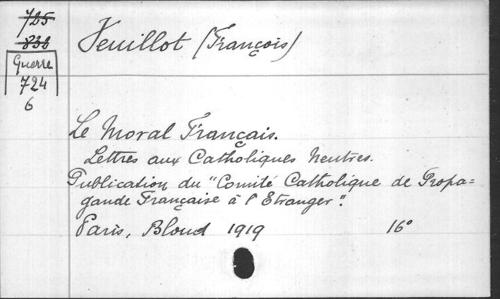 725
832
Guerre
724
6
Veuillot (François)
Le Moral Français.
Lettres aux Catholiques Neutres.
Publication du "Comité Catholique de Propa=
gande Française à l'Etranger".
Paris, Bloud 1919 16°